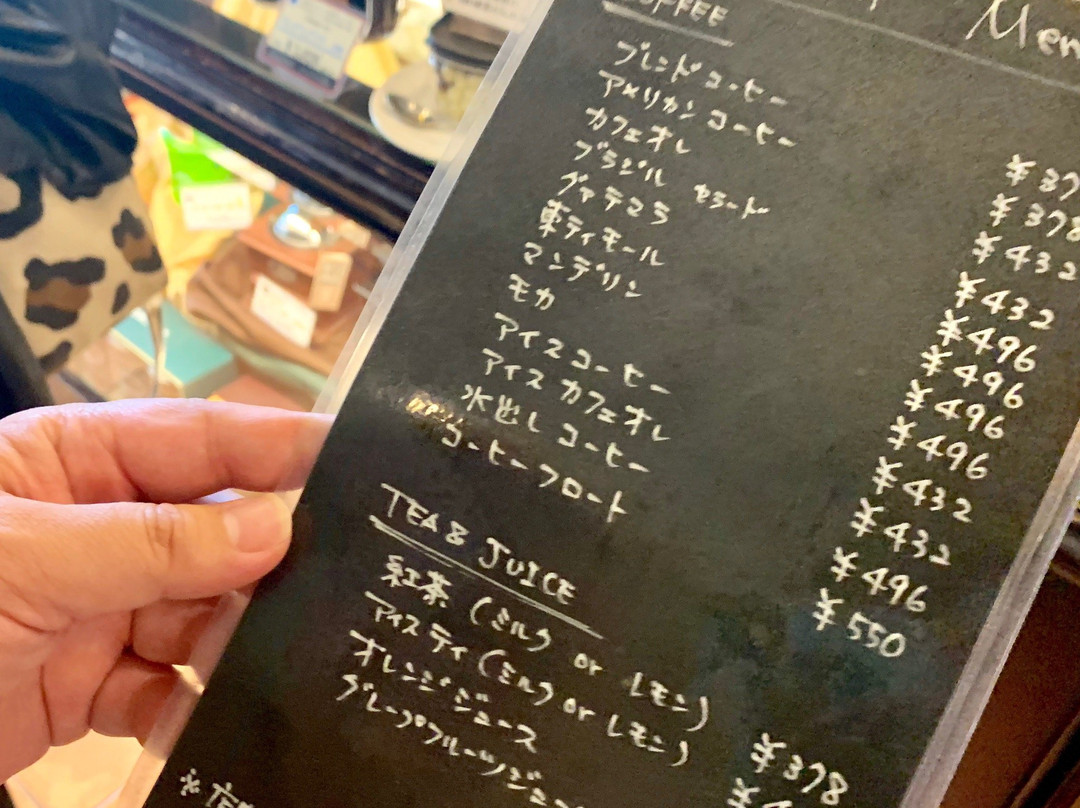 Men
COFFEE
ブレンドコーヒー ¥378
アメリカンコーヒー ¥378
カフェオレ ¥432
ブラジル セラード ¥432
グァテマラ ¥496
東ティモール ¥496
マンデリン ¥496
モカ ¥496
アイスコーヒー ¥432
アイスカフェオレ ¥432
水出しコーヒー ¥496
コーヒーフロート ¥550
TEA & JUICE
紅茶 (ミルク or レモン) ¥378
アイスティ (ミルク or レモン)
オレンジジュース
グレープフルーツジュー